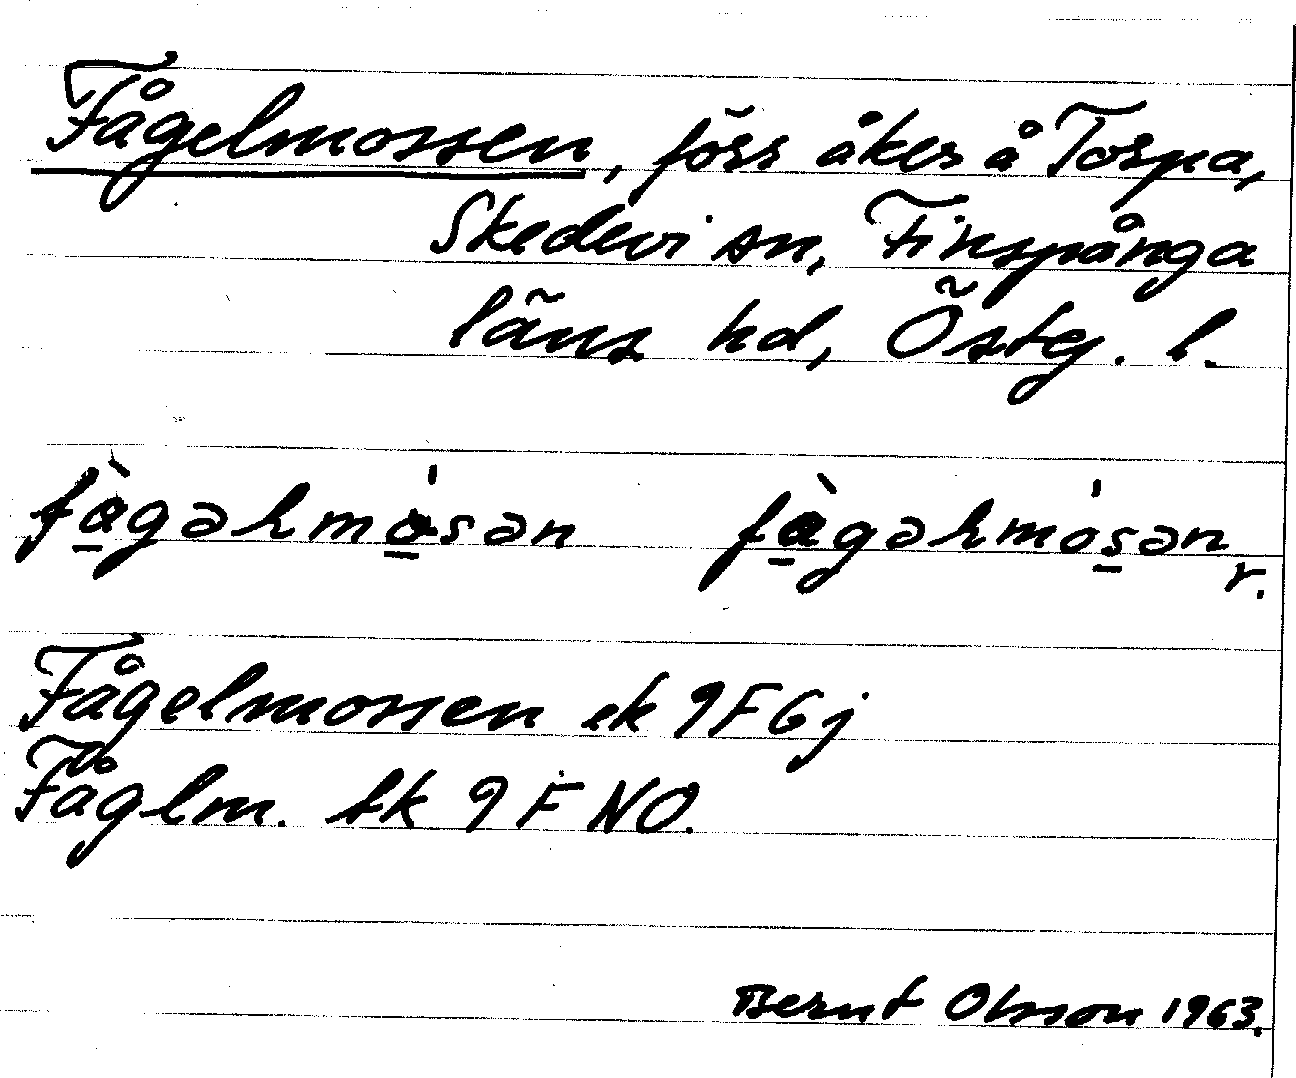 Fågelmossen, förr åker å Torpa,
Skedevi sn, Finspånga
läns hd, Östg. l.
fàgəlmòsən fàgəlmosən
r.
Fågelmossen ek 9FGj
Fåglm. tk 9 F NO.
Bernt Olsson 1963.